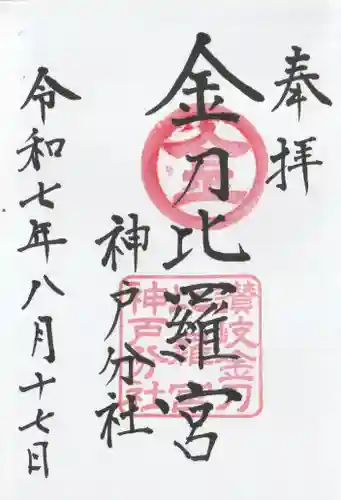 奉拝
金刀比羅宮
神戸分社
令和七年八月十七日
金
讃岐金刀
比羅宮
神戸分社